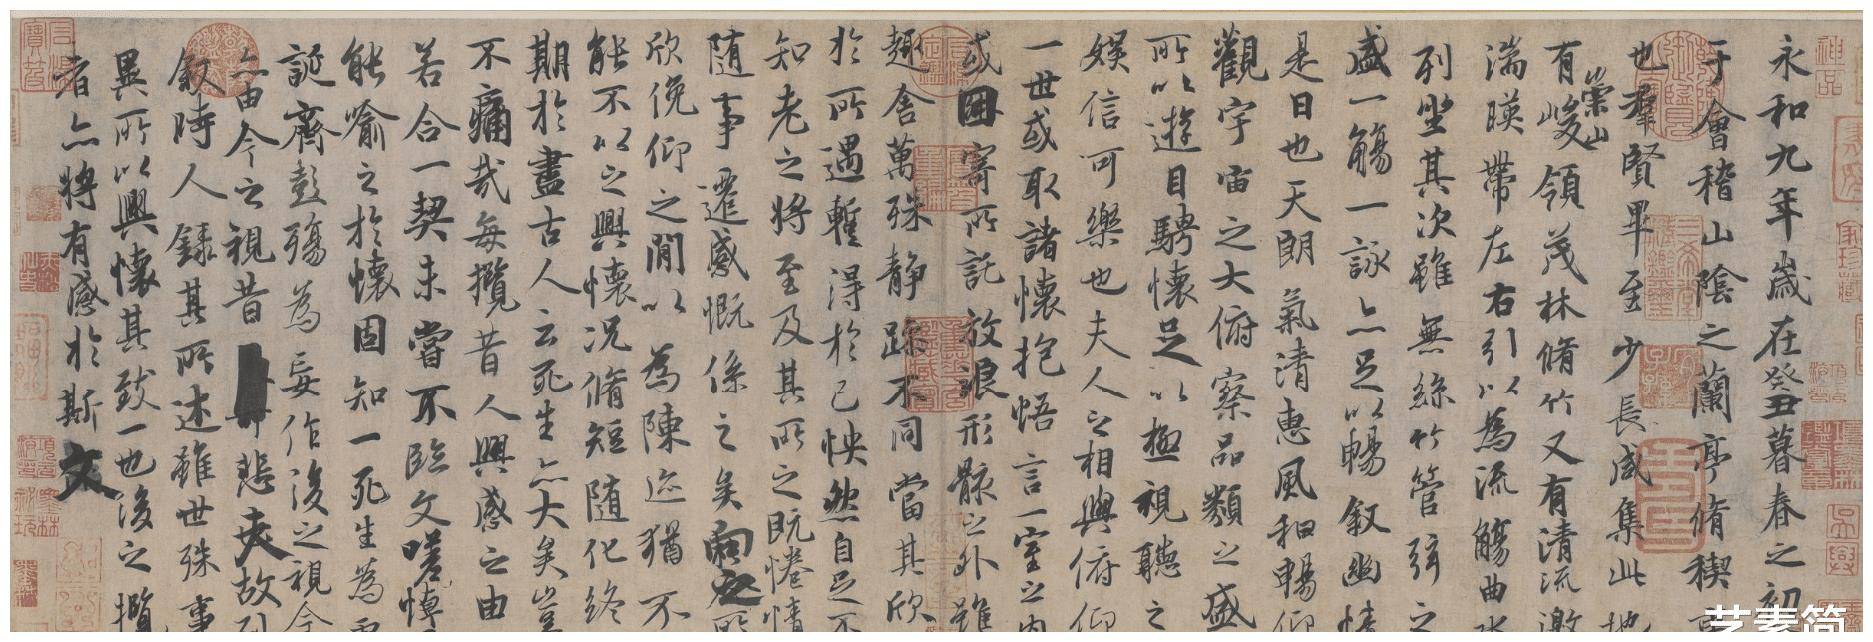 永和九年歲在癸丑暮春之初
于會稽山陰之蘭亭脩稧
也羣賢畢至少長咸集此地
有崇山峻領茂林脩竹又有清流激
湍暎帶左右引以為流觴曲水
列坐其次雖無絲竹管弦之
盛一觴一詠亦足以暢敘幽情
是日也天朗氣清惠風和暢仰
觀宇宙之大俯察品類之盛
所以遊目騁懷足以極視聽之
娛信可樂也夫人之相與俯仰
一世或取諸懷抱悟言一室之內
或因寄所託放浪形骸之外雖
趣舍萬殊靜躁不同當其欣
於所遇蹔得於己怏然自足不
知老之將至及其所之既惓情
隨事遷感慨係之矣向之所
欣俛仰之閒以為陳迹猶不
能不以之興懷況脩短隨化終
期於盡古人云死生亦大矣豈
不痛哉每攬昔人興感之由
若合一契未嘗不臨文嗟悼
能喻之於懷固知一死生為虛
誕齊彭殤為妄作後之視今
亦由今之視昔悲夫故列
敘時人錄其所述雖世殊事
異所以興懷其致一也後之攬
者亦將有感於斯文
神品
艺麦简